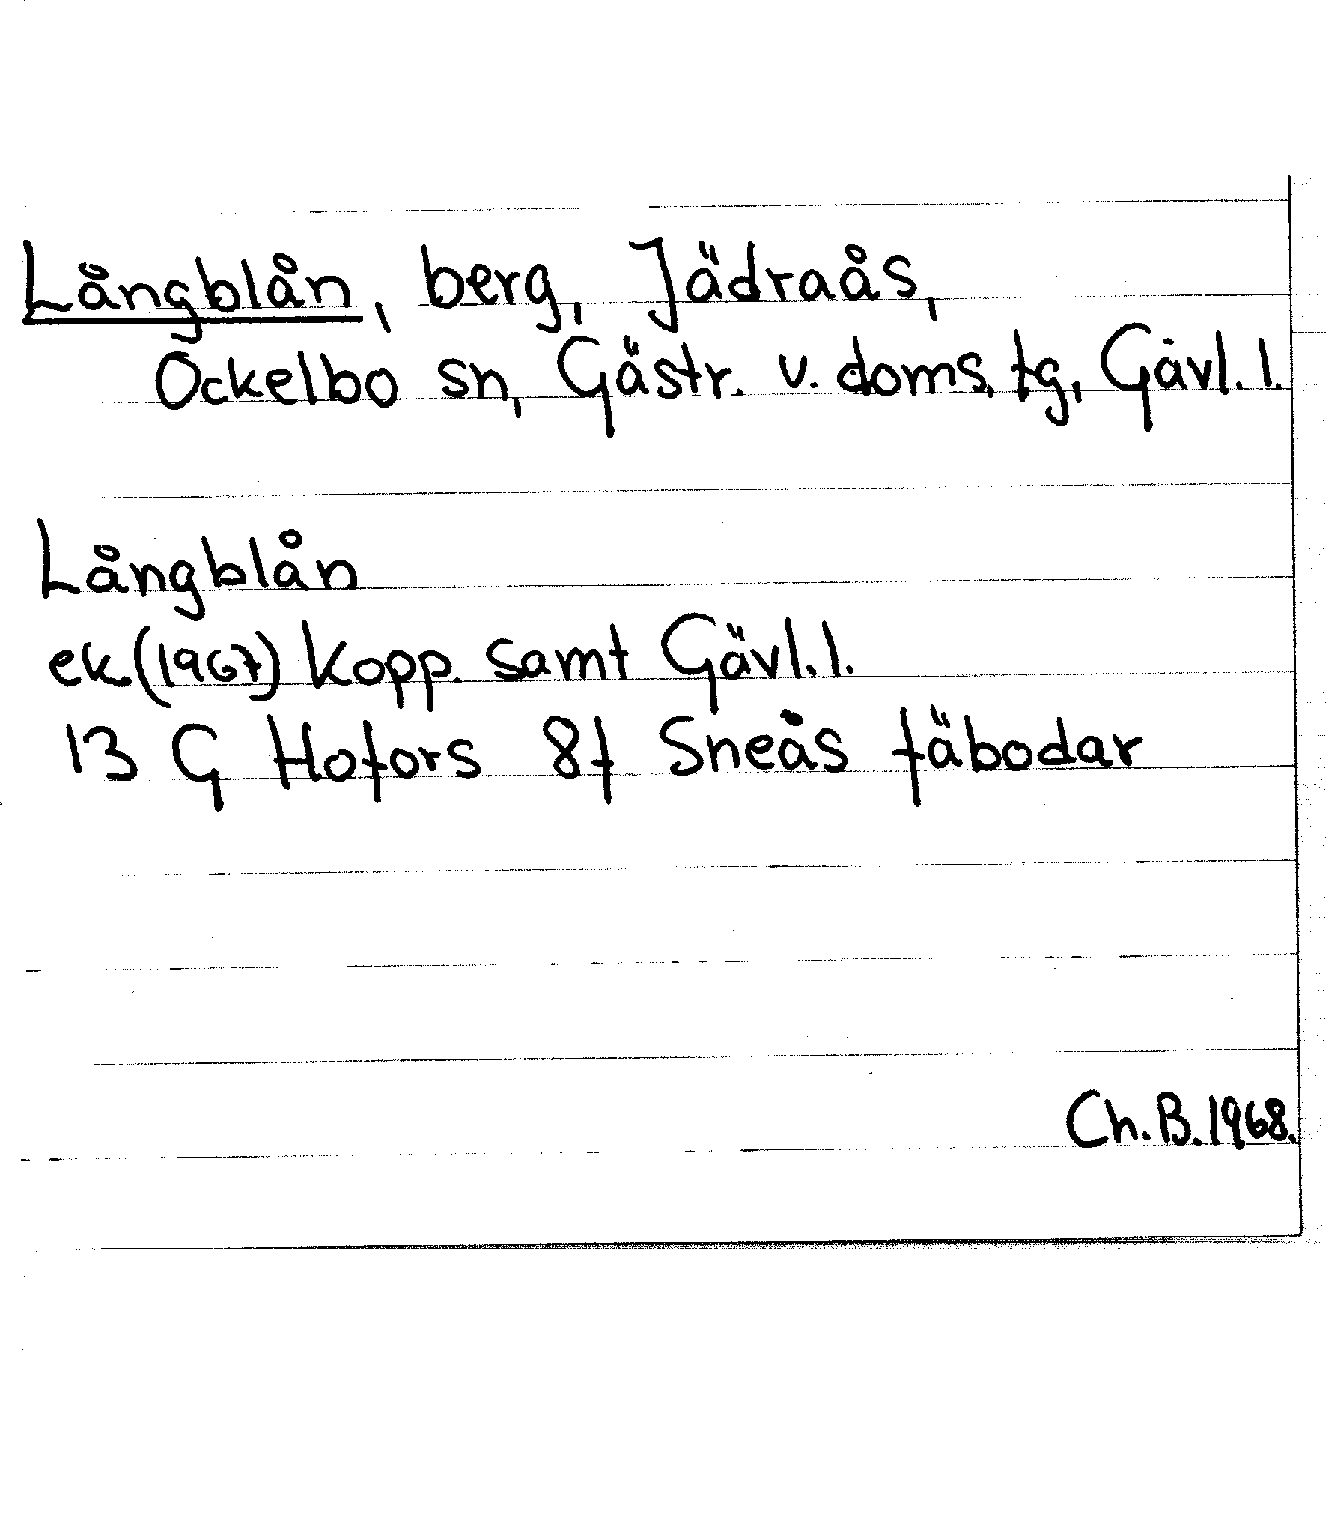 Långblån, berg, Jädraås,
Ockelbo sn, Gästr. v. doms. tg, Gävl. l.
Långblån
ek (1967) Kopp. samt Gävl. l.
13 G Hofors 8f Sneås fäbodar
Ch. B. 1968.